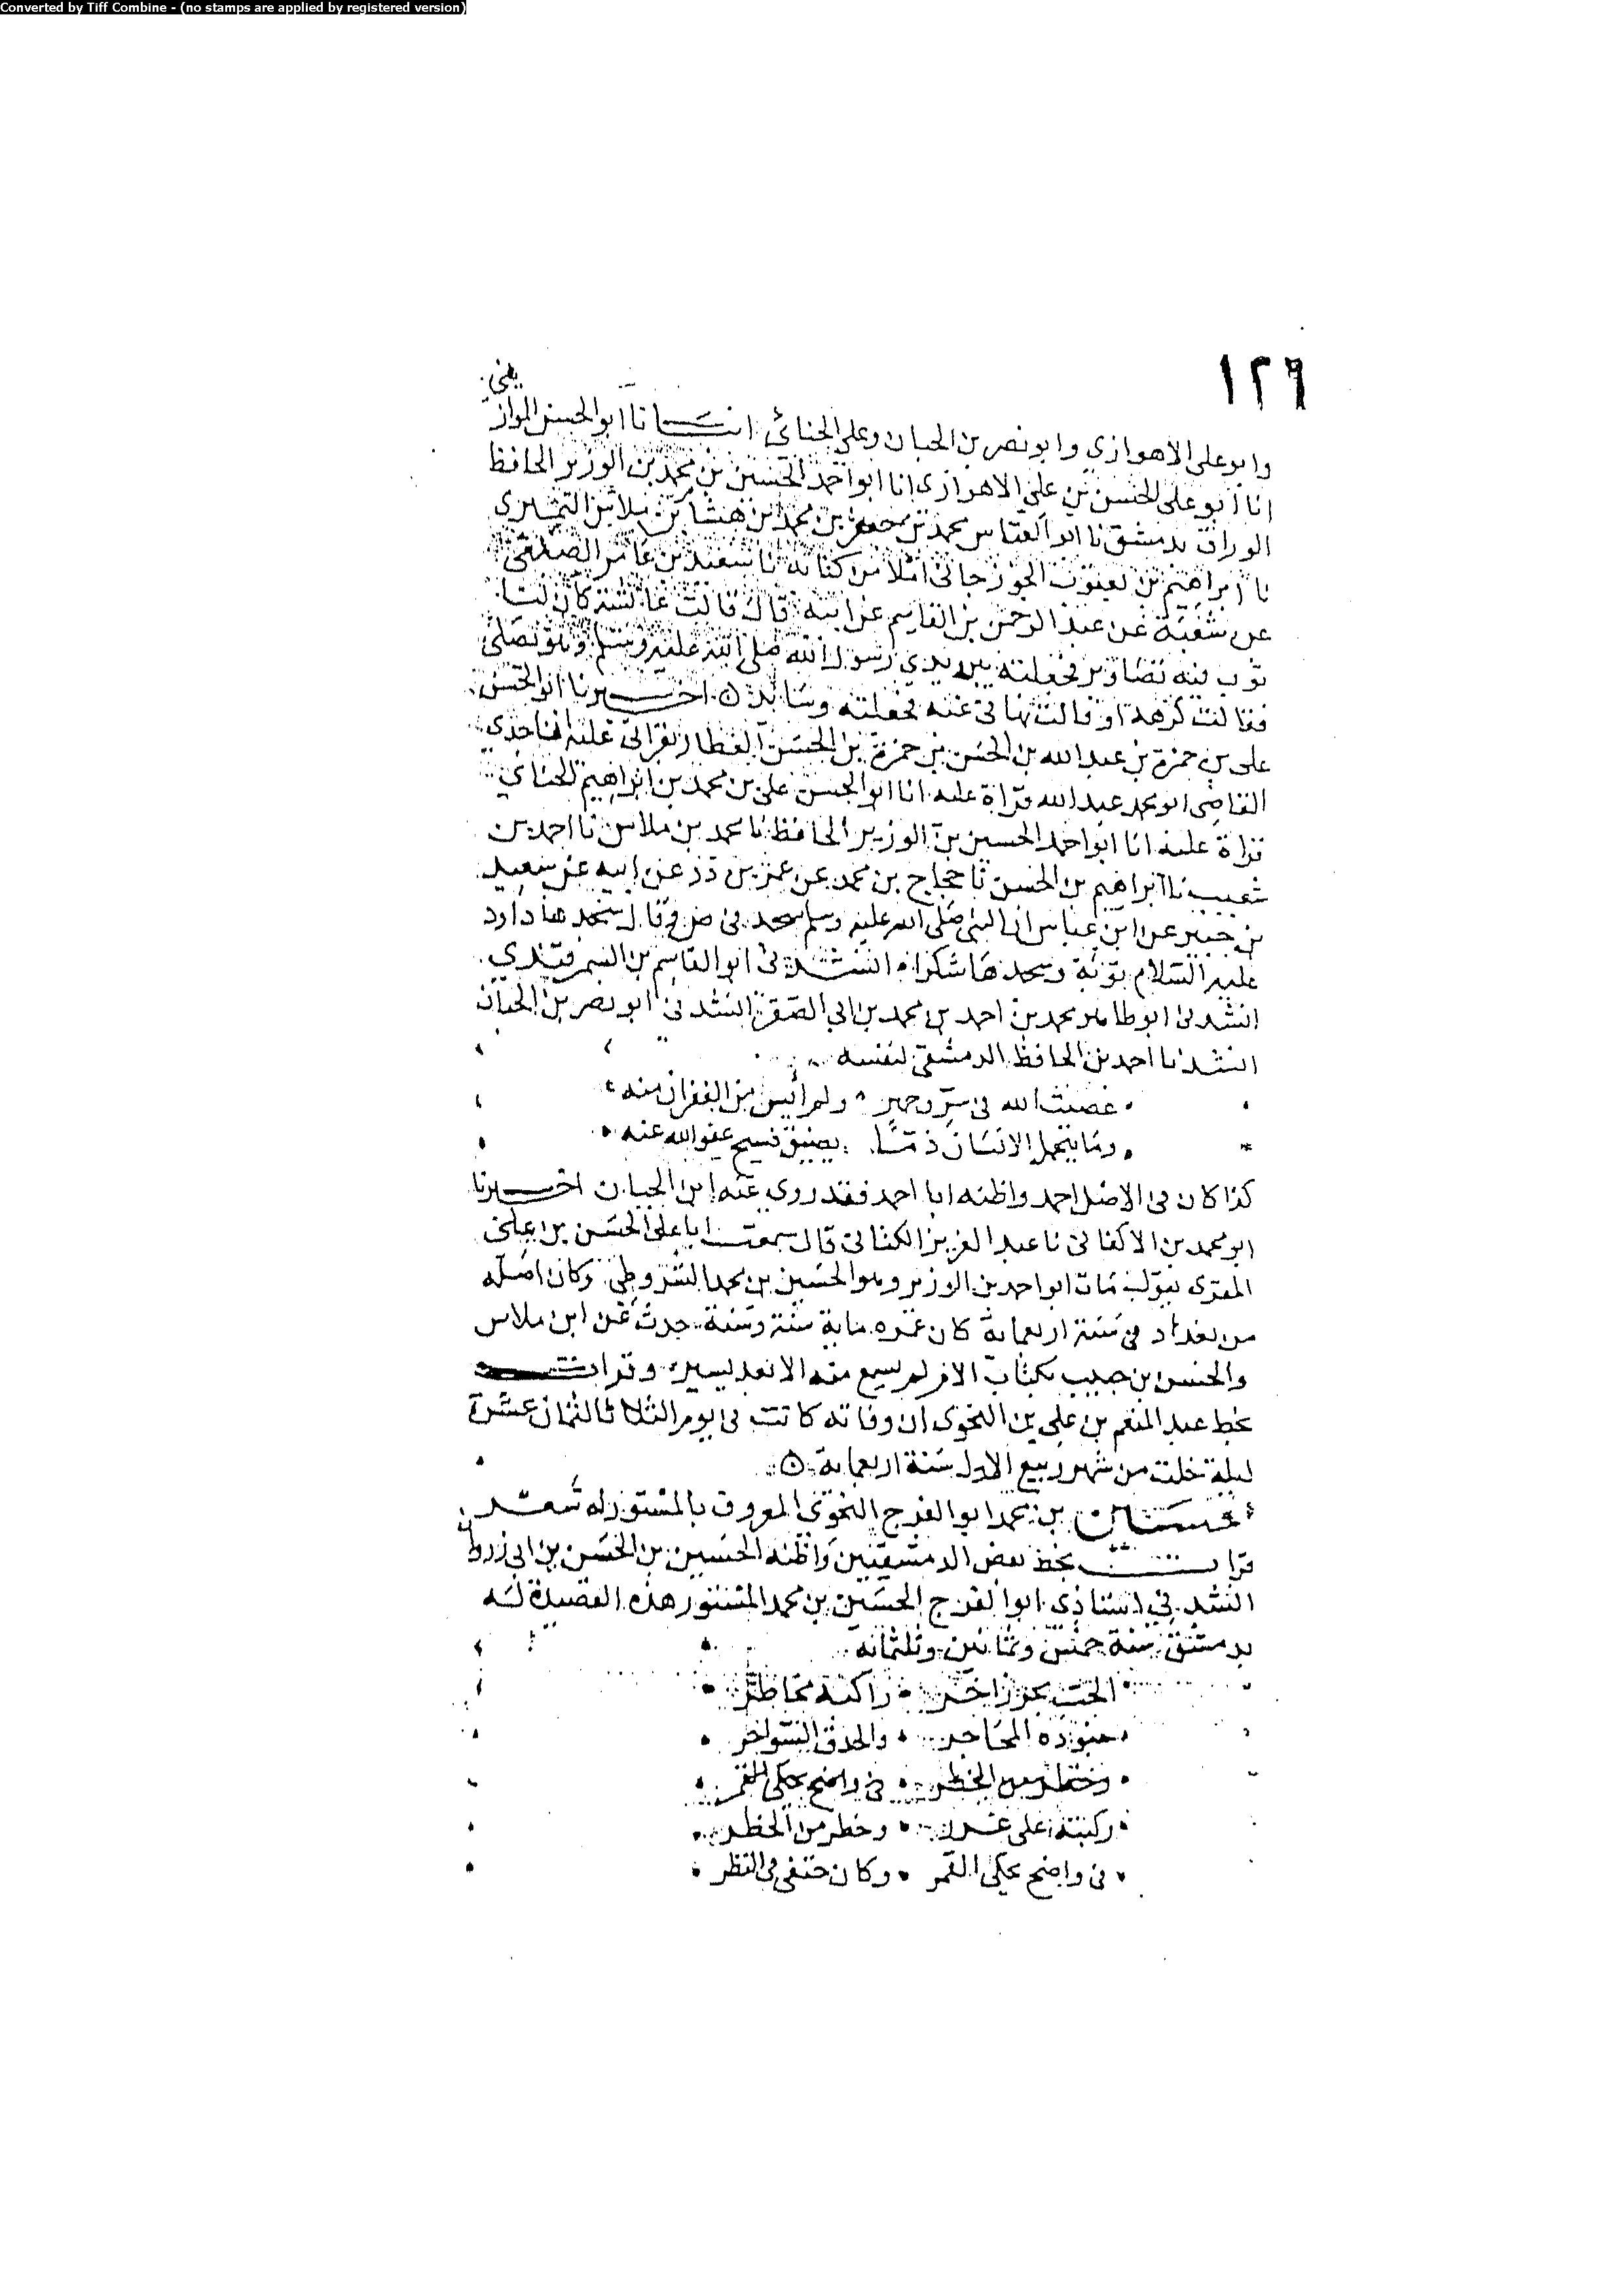 Converted by Tiff Combine - (no stamps are applied by registered version)
١٢٩
وابو على الاهوازي وابو نصر بن الجبان وعلي الحنائي انبانا ابو الحسن الموازيني
انا ابو على الحسن بن على الاهوازى انا ابو احمد الحسين بن محمد بن الوزير الحافظ
الوراق بدمشق نا ابو العباس محمد بن جعفر بن محمد بن هشام بن ملاس النميري
نا ابراهيم بن يعقوب الجوزجانى املا من كتابه نا سعيد بن عامر الضبعي
عن شعبة عن عبد الرحمن بن القاسم عن ابيه قال قالت عائشة كان لنا
ثوب فيه تصاوير فجعلته بين يدي رسول الله صلى الله عليه وسلم وهو يصلى
فقالت كرهه او قالت نهانى عنه فجعلته وسائد اخبرنا ابو الحسن
على بن حمزة بن عبد الله بن الحسن بن حمزة بن الحسن العطار بقراتى عليه انا جدي
القاضى ابو محمد عبد الله قراة عليه انا ابو الحسن على بن محمد بن ابراهيم الحنائي
قراة عليه انا ابو احمد الحسين بن الوزير الحافظ نا محمد بن ملاس نا احمد بن
شعيب نا ابراهيم بن الحسن نا حجاج بن محمد عن عمر بن ذر عن ابيه عن سعيد
بن جبير عن ابن عباس ان النبى صلى الله عليه وسلم سجد فى ص وقال سجدها داود
عليه السلام توبة ونسجدها شكرا انشدنى ابو القاسم بن السمرقندي
انشدنى ابو طاهر محمد بن احمد بن محمد بن ابي الصقر انشدنى ابو نصر بن الجبان
انشدنا احمد بن الحافظ الدمشقى لنفسه
عصيت الله فى سر وجهر ولم ائيس من الغفران منه
وما يتحمل الانسان ذنبا يضيق فسيح عفو الله عنه
كذا كان فى الاصل احمد واظنه ابا احمد فقد روى عنه ابن الجبان اخبرنا
ابو محمد بن الاكفانى نا عبد العزيز الكتانى قال سمعت ابا على الحسن بن على
المقرى يقول مات ابو احمد بن الوزير وهو الحسين بن محمد الشروطى وكان اصله
من بغداد فى سنة اربعماية كان عمره ماية سنة وسنة حدث عن ابن ملاس
والحسن بن حبيب بكتاب الام لم يسمع منه الا بعد يسير وقرات
بخط عبد المنعم بن على بن النحوى ان وفاته كانت فى يوم الثلاثا لثمان عشرة
ليلة خلت من شهر ربيع الاول سنة اربعماية
الحسين بن محمد ابو الفرج النحوى المعروف بالمستور له شعر
قرات بخط بعض الدمشقيين واظنه الحسين بن الحسن بن ابى زرطان
انشدني استاذى ابو الفرج الحسين بن محمد المستور هذه القصيدة له
بدمشق سنة خمس وثمانين وثلثمائه
الحب بحر زاخر راكبه مخاطر
جنوده المحاجر والحدق السواحر
فى واضح يحكى القمر
ركبته على غرر وخطر من الخطر
فى واضح يحكى القمر وكان حتفى فى النظر